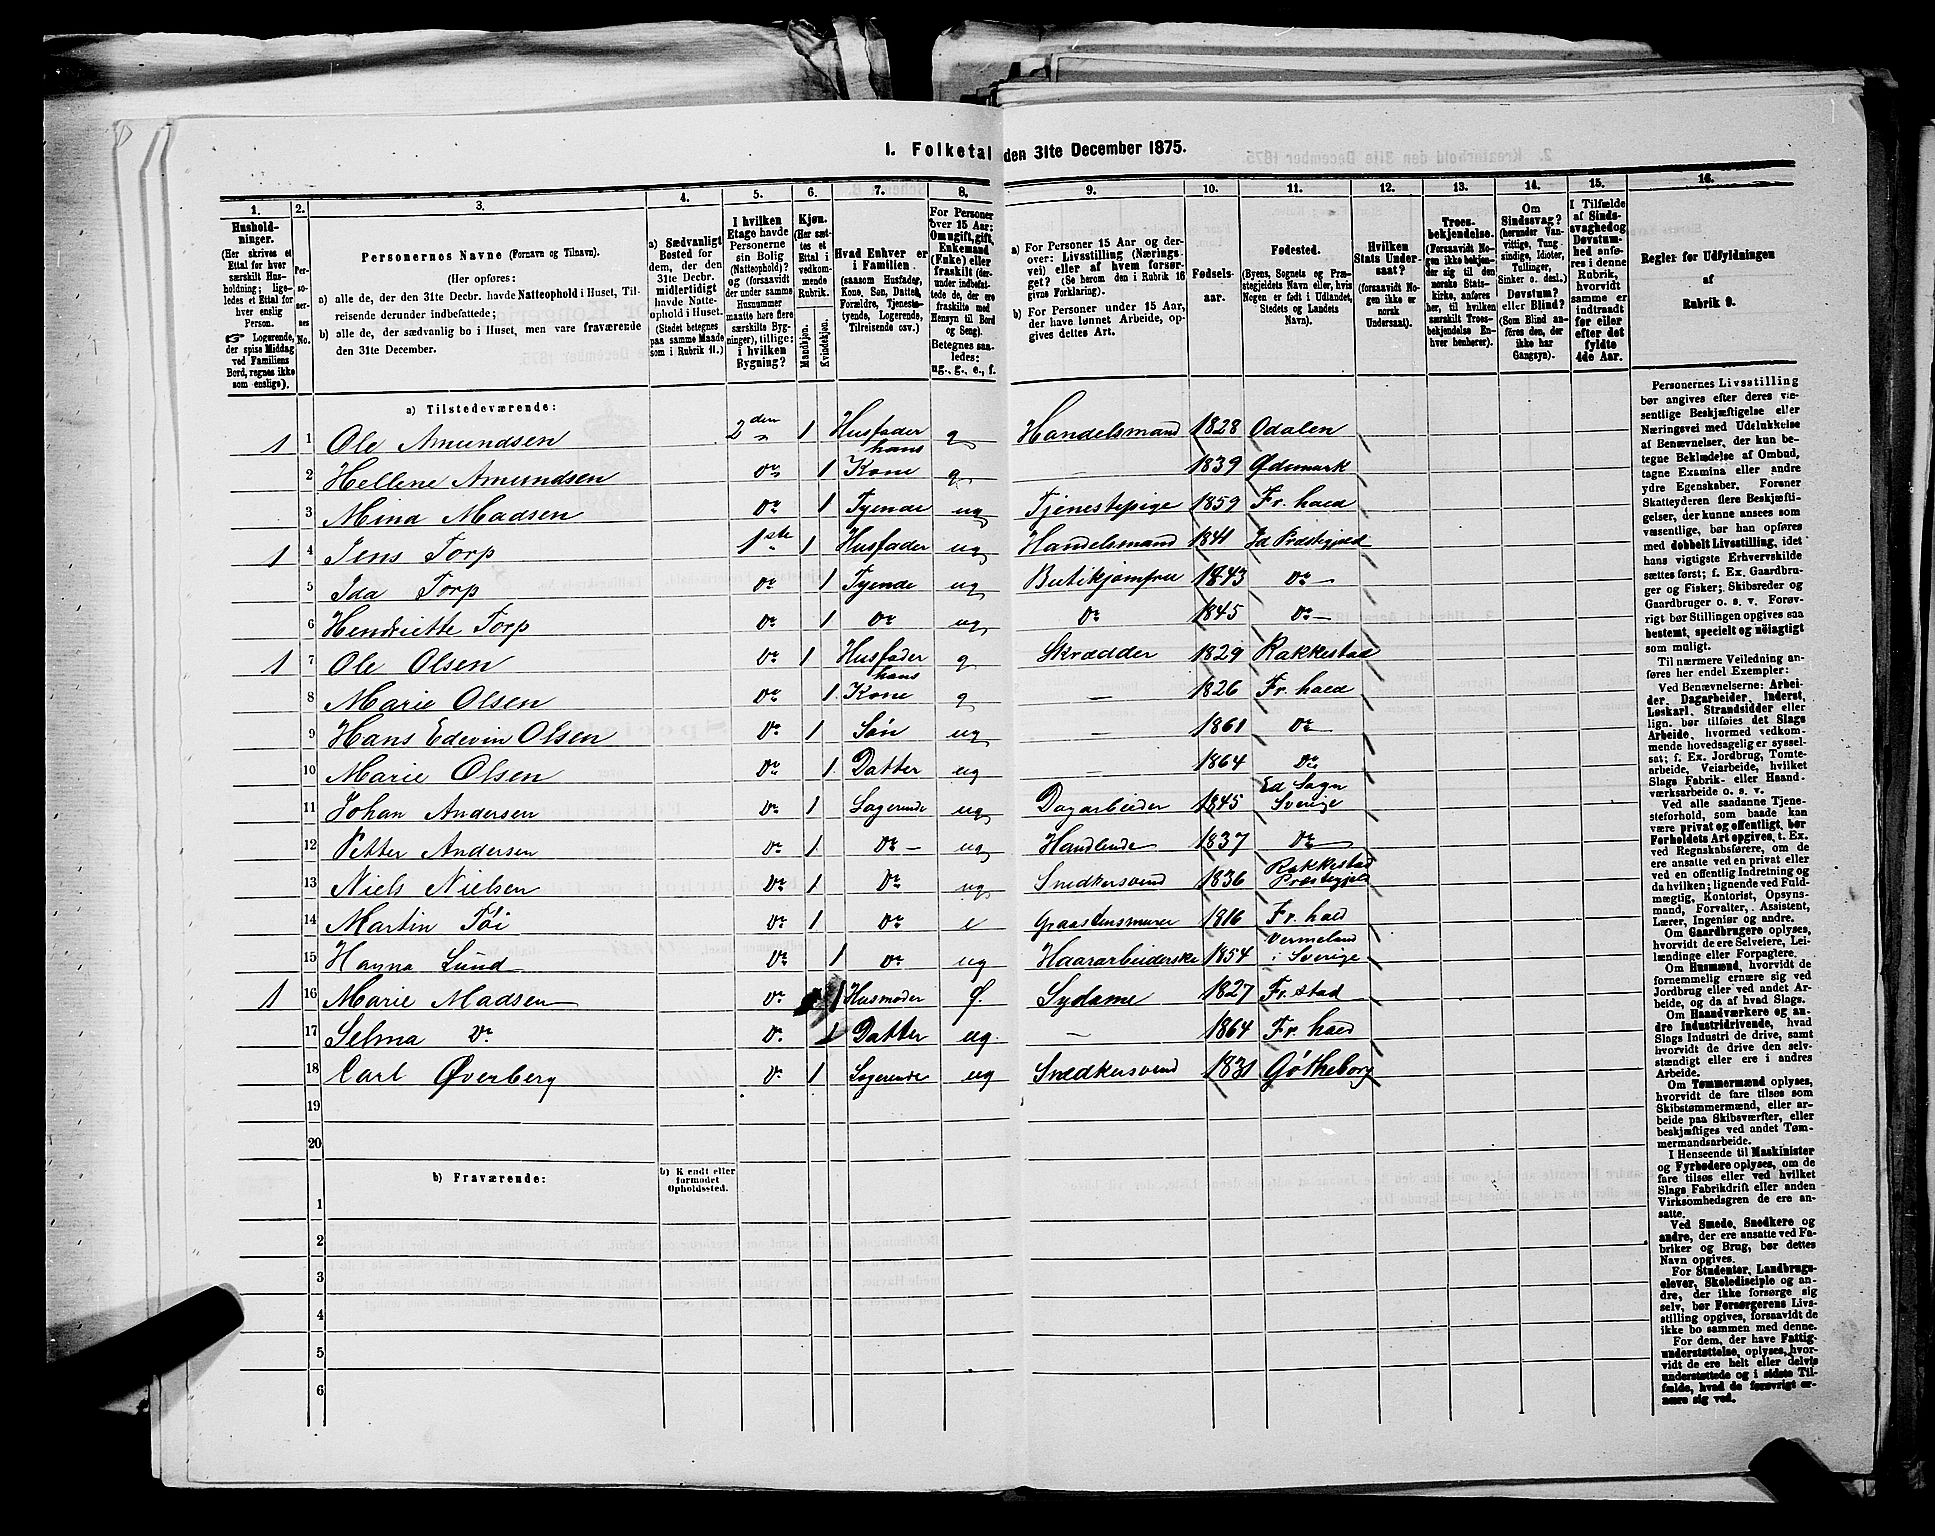 1. Folketal den 31te December 1875.
1. 2. 3. 4. 5. 6. 7. 8. 9. 10. 11. 12. 13. 14. 15. 16.
Husholdninger.
(Her skrives et
Ettal for hver
særskilt Husholdning; ligeledes
et Ettal for
hver enslig
Person.
☞ Logerende,
der spise Middag
ved Familiens
Bord, regnes ikke
som enslige).
Personernes No.
Personernes Navne (Fornavn og Tilnavn).
(Her opføres:
a) alle de, der den 31te Decbr. havde Natteophold i Huset, Tilreisende
derunder indbefattede;
b) alle de, der sædvanlig bo i Huset, men vare fraværende
den 31te December.
a) Sædvanligt
Bosted for
dem, der den
31te Decbr.
midlertidigt
havde Natteophold
i Huset.
(Stedet betegnes
paa samme Maade
som i Rubrik 11.)
I hvilken
Etage havde
Personerne
sin Bolig
(Natteophold)?
og (forsaavidt
der under samme
Husnummer
maatte høre flere
særskilte Bygninger),
tillige:
i hvilken
Bygning?
Kjøn.
(Her sættes
et
Ettal i
vedkommende
Rubrik.
Mandkjøn.
Kvindekjøn.
Hvad Enhver er
i Familien.
(saasom Husfader,
Kone, Søn, Datter,
Forældre, Tjenestetyende,
Logerende,
Tilreisende osv.)
For Personer
over 15 Aar:
Om ugift, gift,
Enkemand
(Enke) eller
fraskilt (derindbefattede
de, der ere
fraskilte med
Hensyn til Bord
og Seng).
Betegnes saaledes:
ug., g., e., f.
a) For Personer 15 Aar og derover:
Livsstilling (Næringsvei)
eller af hvem forsørget?
(Se herom den i Rubrik 16
givne Forklaring).
b) For Personer under 15 Aar,
der have lønnet Arbeide, opgives
dettes Art.
Fødselsaar.
Fødested.
(Byens, Sognets og Præstegjeldets
Navn eller, hvis
Nogen er født i Udlandet,
Stedets og Landets
Navn).
Hvilken
Stats Undersaat?
(forsaavidt Nogen
ikke er
norsk
Undersaat).
Troesbekjendelse.
(Forsaavidt Nogen
ikke bekjender
sig til den
norske Statskirke,
anføres
her, til hvilken
særskilt Troesbekjendelse
Enhver
henhører).
Om
Sindssvag?
(herunder Vanvittige,
Tungsindige,
Idioter,
Tullinger,
Sinker o. desl.)
Døvstum?
eller Blind?
(Som Blind anføres
den, der
ikke har
Gangsyn).
I Tilfælde
af Sindssvaghed
og
Døvstumhed
anføres
i denne
Rubrik,
hvorvidt
samme er
indtraadt
før eller
efter det
fyldte
4de Aar.
Regler for Udfyldningen
af
Rubrik 9.
a) Tilstedeværende:
1 1 Ole Amundsen 2den 1 Husfader g Handelsmand 1828 Odalen
2 Hellene Amundsen do 1 hans Kone g — 1839 Ødemark
3 Mina Madsen do 1 Tyende ug Tjenestepige 1859 Fr. hald
1 4 Jens Torp 1ste 1 Husfader ug Handelsmand 1841 Id Præstegjeld
5 Ida Torp do 1 Tyende ug Butikjomfru 1843 do
6 Henriette Torp do 1 do ug do 1845 do
1 7 Ole Olsen do 1 Husfader g Skrædder 1829 Rakkestad
8 Marie Olsen do 1 hans Kone g — 1826 Fr. hald
9 Hans Edevin Olsen do 1 Søn ug — 1861 do
10 Marie Olsen do 1 Datter ug — 1864 do
11 Johan Andersen do 1 Logerende ug Dagarbeider 1845 Ed Sogn Sverige
12 Petter Andersen do 1 do ug Handlende 1837 do
13 Niels Nielsen do 1 do ug Snedkersvend 1836 Rakkestad Præstegjeld
14 Martin Töi do 1 do e Graastensmurer 1816 Fr. hald
15 Hanna Lund do 1 do ug Haararbeiderske 1854 Vermeland i Sverige
1 16 Marie Madsen do 1 Husmoder Sydame 1827 Fr. stad
17 Selma do do 1 Datter ug. — 1864 Fr. hald
18 Carl Øverberg do 1 Logerende ug Snedkersvend 1831 Götheborg
19
20
b) Fraværende:
b) Kjendt eller
formodet
Opholdssted.
1
2
3
4
5
6
Personernes Livsstilling
bør angives efter deres væsentlige
Beskjæftigelse eller
Næringsvei med Udelukkelse
af Benævnelser, der kun betegne
Beklædelse af Ombud,
tagne Examina eller andre
ydre Egenskaber. Forener
Skatteyderen flere Beskjæftigelser,
der kunne ansees som
væsentlige, bør han opføres
med dobbelt Livsstilling, idet
hans vigtigste Erhvervskilde
sættes først; f. Ex. Gaardbruger
og Fisker; Skibsreder og
Gaardbruger o. s. v. Forøvrigt
bør Stillingen opgives saa
bestemt, specielt og nöiagtigt
som muligt.
Til nærmere Veiledning anføres
her endel Exempler:
Ved Benævnelserne: Arbeider,
Dagarbeider, Inderst,
Løskarl, Strandsidder eller
lign. bør tilføies det Slags
Arbeide, hvormed vedkommende
hovedsagelig er sysselsat;
f. Ex. Jordbrug, Tomtearbeide,
Veiarbeide, hvilket
Slags Fabrik- eller Haandværksarbeide
o. s. v.
Ved alle saadanne Tjenesteforhold,
som baade kan
være privat og offentligt, bør
Forholdets Art opgives, t. Ex.
ved Regnskabsførere, om de
ere ansatte ved en privat eller
ved en offentlig Indretning og
da hvilken; lignende ved Fuldmægtig,
Kontorist, Opsynsmand,
Forvalter, Assistent,
Lærer, Ingeniør og andre.
Om Gaardbrugere oplyses,
hvorvidt de ere Selveiere, Leilændinge
eller Forpagtere.
Om Husmænd, hvorvidt de
fornemmelig ernære sig ved
Jordbrug eller ved andet Arbeide,
og da af hvad Slags.
Om Haandværkere og andre
Industridrivende, hvad
Slags Industri de drive, samt
hvorvidt de drive den selvstændigt
eller ere i andres
Arbeide.
Om Tømmermænd oplyses,
hvorvidt de fare tilsøs som
Skibstømmermænd, eller arbeide
paa Skibsværfter, eller
beskjæftiges ved andet Tømmermandsarbeide.
I Henseende til Maskinister
og Fyrbødere oplyses, om de
fare tilsøs eller ved hvilket
Slags Fabrikdrift eller anden
Virksomhedsgren de ere ansatte.
Ved Smede, Snedkere og
andre, der ere ansatte ved Fabriker
og Brug, bør dettes
Navn opgives.
For Studenter, Landbrugselever,
Skoledisciple og andre,
der ikke forsørge sig
selv, bør Forsørgerens Livsstilling
opgives, forsaavidt de
ikke bo sammen med denne.
For dem, der have Fattigunderstøttelse,
oplyses, hvorvidt
de ere helt eller delvis
understøttede og i sidste Tilfælde,
hvad de forøvrigt ernære
sig ved.